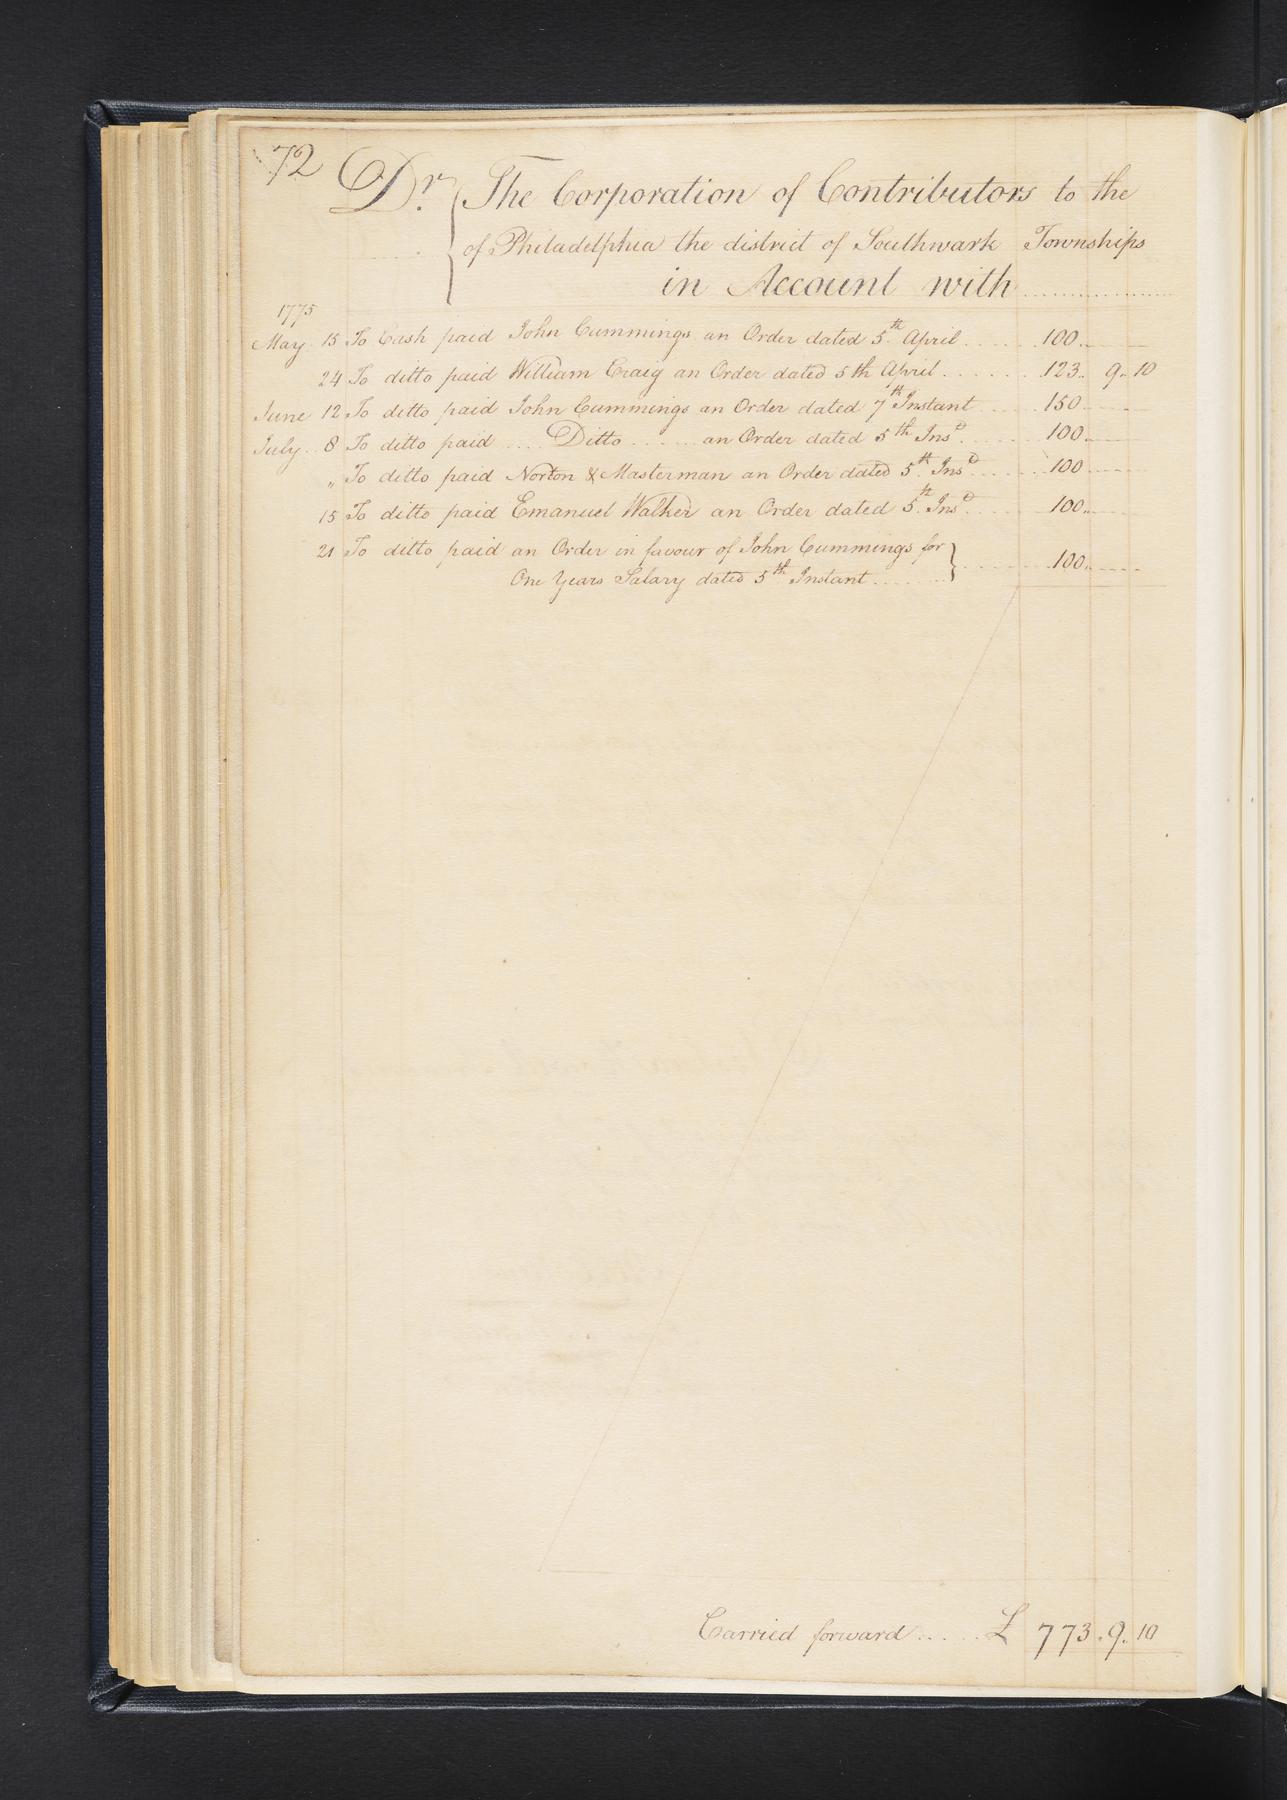 72 Dr. The Corporation of Contributors to the
of Philadelphia the district of Southwark Townships
in Account with
1775
May 15 To Cash paid John Cummings an Order dated 5th April ...... 100..
24 To ditto paid William Craig an Order dated 5th April ...... 123.. 9.. 10
June 12 To ditto paid John Cummings an Order dated 7th Instant ..... 150
July 8 To ditto paid .... Ditto ...... an Order dated 5th Inst. ..... 100
" To ditto paid Norton & Masterman an Order dated 5th Inst ..... 100
15 To ditto paid Emanuel Walker an Order dated 5th Inst ..... 100..
21 To ditto paid an Order in favour of John Cummings for
One Years Salary dated 5th Instant ...... 100..
Carried forward ..... £ 773. 9.. 10